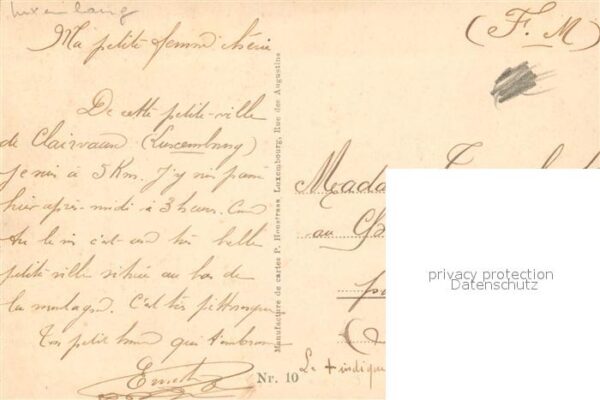 Luxembourg
(F. M)
Ma petite femme chérie
De cette petite ville
de Clairvaux (Luxembourg)
je suis à 5 Km. J'y suis passé
hier après-midi à 3 heures.
c'est une très belle
petite ville située au bas de
la montagne. C'est très pittoresque
Ton petit homme qui t'embrasse
Ernest
Manufacture de cartes P. Houstrass, Luxembourg, Rue des Augustins
Nr. 10
Madame
au
La + indique
privacy protection
Datenschutz